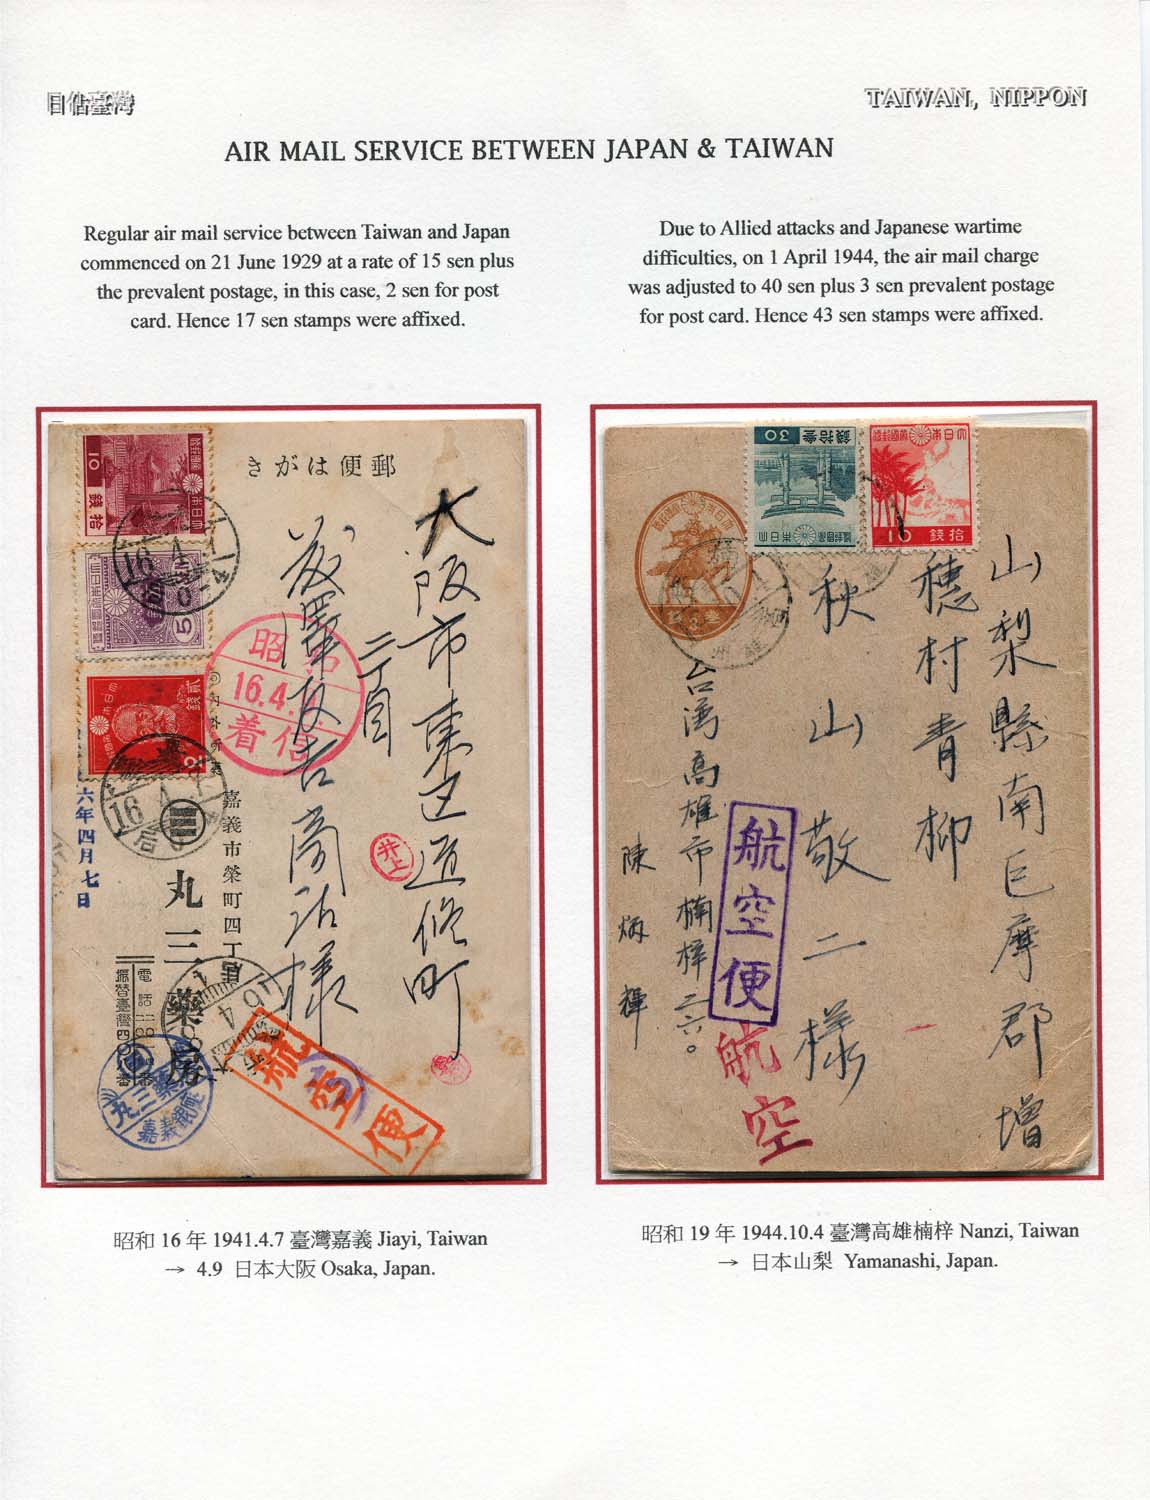 日佔臺灣
TAIWAN, NIPPON
AIR MAIL SERVICE BETWEEN JAPAN & TAIWAN
Regular air mail service between Taiwan and Japan
commenced on 21 June 1929 at a rate of 15 sen plus
the prevalent postage, in this case, 2 sen for post
card. Hence 17 sen stamps were affixed.
Due to Allied attacks and Japanese wartime
difficulties, on 1 April 1944, the air mail charge
was adjusted to 40 sen plus 3 sen prevalent postage
for post card. Hence 43 sen stamps were affixed.
郵便はがき
大阪市東区道修町
二丁目
友吉商店様
10
拾錢
5
貳錢
2
昭和
16.4.
着信
16.4.
16
后
六年四月七日
嘉義市榮町四丁
丸三藥房
電話
振替臺灣
井上
丸三藥
嘉義
航空便
30
錢拾叁
大日本帝國郵便
10
拾錢
山梨縣南巨摩郡増
穂村青柳
秋山敬二様
台湾高雄市楠梓二六。
陳炳輝
航空便
航空
昭和 16 年 1941.4.7 臺灣嘉義 Jiayi, Taiwan
→ 4.9 日本大阪 Osaka, Japan.
昭和 19 年 1944.10.4 臺灣高雄楠梓 Nanzi, Taiwan
→ 日本山梨 Yamanashi, Japan.